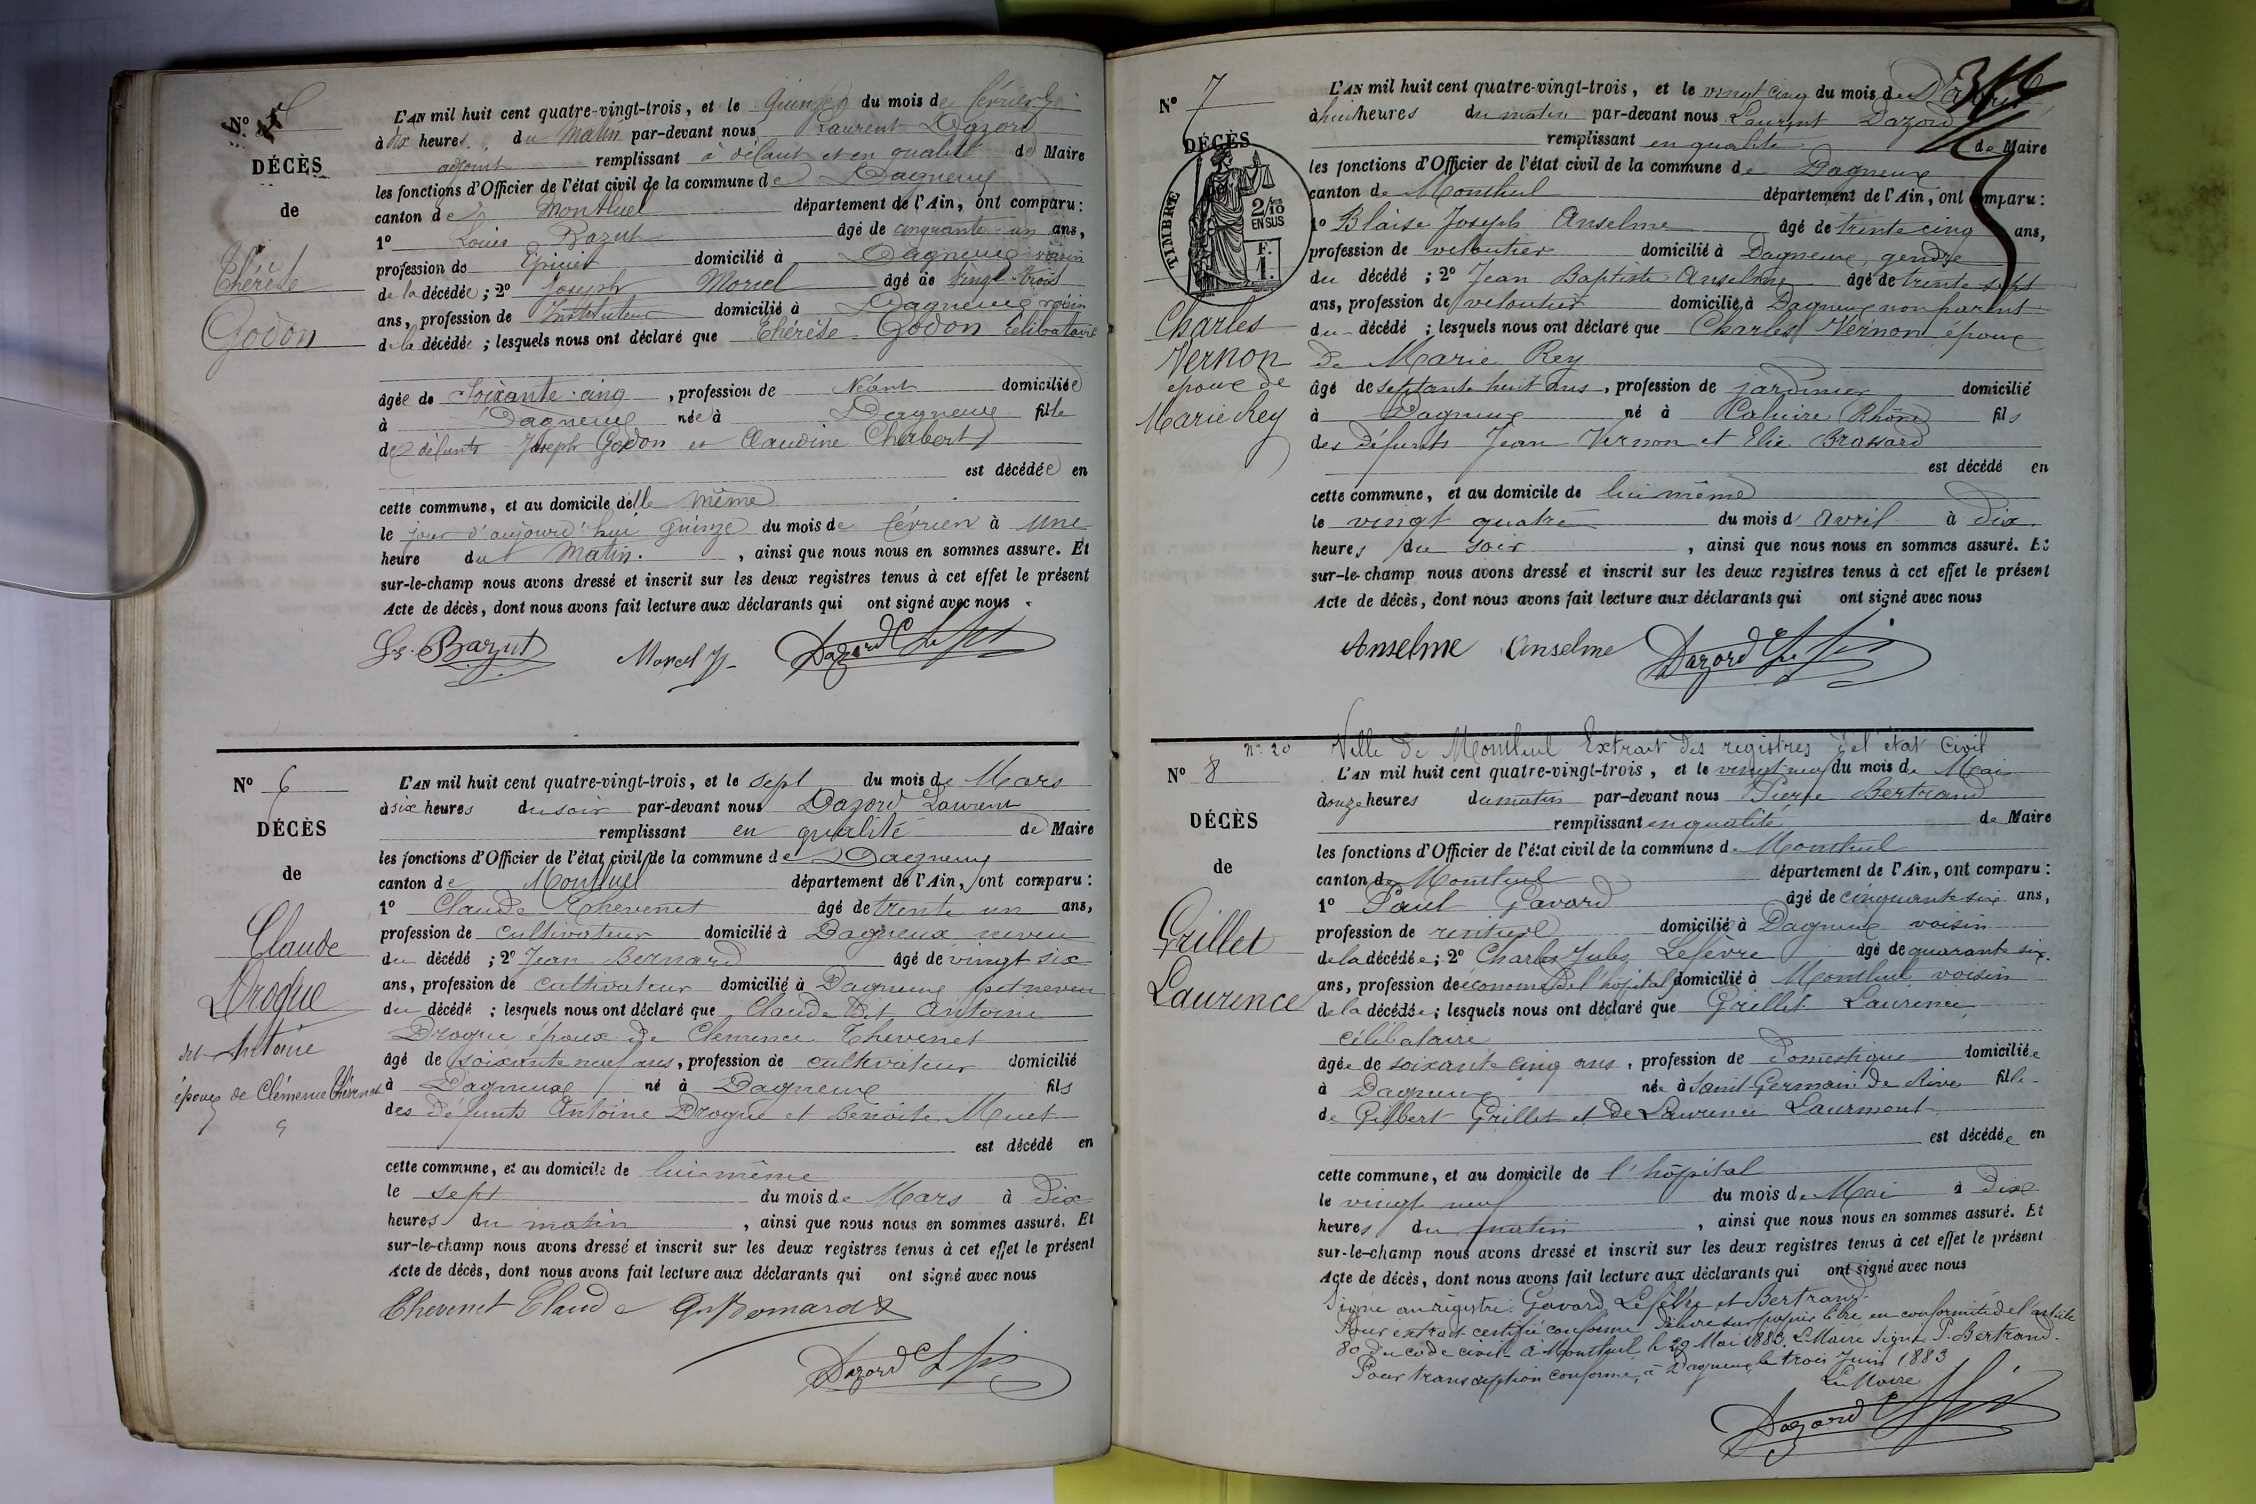 N° 5
DÉCÈS
de
Thérèse
Godon
L'AN mil huit cent quatre-vingt-trois, et le Quinze du mois de février
à dix heures du matin par-devant nous Laurent Dazord
adjoint remplissant à défaut et en qualité de Maire
les fonctions d'Officier de l'état civil de la commune de Dagneux
canton de Montluel département de l'Ain, ont comparu :
1° Louis Bazut âgé de cinquante un ans,
profession de Epicier domicilié à Dagneux voisin
de la décédée ; 2° Joseph Morel âgé de vingt-trois
ans, profession de Instituteur domicilié à Dagneux voisin
de la décédée ; lesquels nous ont déclaré que Thérèse Godon Célibataire
âgée de Soixante-cinq, profession de Néant domiciliée
à Dagneux née à Dagneux fille
des défunts Joseph Godon et Claudine Chabert
est décédée en
cette commune, et au domicile d'elle même
le jour d'aujourd'hui quinze du mois de février à une
heure du matin, ainsi que nous nous en sommes assuré. Et
sur-le-champ nous avons dressé et inscrit sur les deux registres tenus à cet effet le présent
Acte de décès, dont nous avons fait lecture aux déclarants qui ont signé avec nous.
Bazut Morel J. Dazord
N° 6
DÉCÈS
de
Claude
Drogue
dit Antoine
époux de Clémence Thévenet
L'AN mil huit cent quatre-vingt-trois, et le sept du mois de Mars
à six heures du soir par-devant nous Dazord Laurent
remplissant en qualité de Maire
les fonctions d'Officier de l'état civil de la commune de Dagneux
canton de Montluel département de l'Ain, ont comparu :
1° Claude Thevenet âgé de trente un ans,
profession de cultivateur domicilié à Dagneux neveu
du décédé ; 2° Jean Bernard âgé de vingt six
ans, profession de cultivateur domicilié à Dagneux petit neveu
du décédé ; lesquels nous ont déclaré que Claude dit Antoine
Drogue époux de Clémence Thevenet
âgé de soixante neuf ans, profession de cultivateur domicilié
à Dagneux né à Dagneux fils
des défunts Antoine Drogue et Benoite Muet
est décédé en
cette commune, et au domicile de lui-même
le sept du mois de Mars à dix
heures du matin, ainsi que nous nous en sommes assuré. Et
sur-le-champ nous avons dressé et inscrit sur les deux registres tenus à cet effet le présent
Acte de décès, dont nous avons fait lecture aux déclarants qui ont signé avec nous
Thevenet Claude Bernard
Dazord
N° 7
DÉCÈS
TIMBRE
2/10 EN SUS
F. 1.
Charles
Vernon
époux de
Marie Rey
L'AN mil huit cent quatre-vingt-trois, et le vingt cinq du mois d'Avril
à huit heures du matin par-devant nous Laurent Dazord
remplissant en qualité de Maire
les fonctions d'Officier de l'état civil de la commune de Dagneux
canton de Montluel département de l'Ain, ont comparu :
1° Blaise Joseph Anselme âgé de trente cinq ans,
profession de veloutier domicilié à Dagneux, gendre
du décédé ; 2° Jean Baptiste Anselme âgé de trente sept
ans, profession de veloutier domicilié à Dagneux non parent
du décédé ; lesquels nous ont déclaré que Charles Vernon époux
de Marie Rey
âgé de septante huit ans, profession de jardinier domicilié
à Dagneux né à Caluire (Rhône) fils
des défunts Jean Vernon et Elie Brossard
est décédé en
cette commune, et au domicile de lui même
le vingt quatre du mois d'avril à dix
heures du soir, ainsi que nous nous en sommes assuré. Et
sur-le-champ nous avons dressé et inscrit sur les deux registres tenus à cet effet le présent
Acte de décès, dont nous avons fait lecture aux déclarants qui ont signé avec nous
Anselme Anselme Dazord
n° 20 Ville de Montluel Extrait des registres de l'état civil
N° 8
DÉCÈS
de
Grillet
Laurence
L'AN mil huit cent quatre-vingt-trois, et le vingt neuf du mois de Mai
douze heures du matin par-devant nous Pierre Bertrand
remplissant en qualité de Maire
les fonctions d'Officier de l'état civil de la commune de Montluel
canton de Montluel département de l'Ain, ont comparu :
1° Paul Gavard âgé de cinquante six ans,
profession de rentier domicilié à Dagneux voisin
de la décédée ; 2° Charles Jules Lefèvre âgé de quarante six
ans, profession de économe de l'hôpital domicilié à Montluel voisin
de la décédée ; lesquels nous ont déclaré que Grillet Laurence
célibataire
âgée de soixante cinq ans, profession de domestique domiciliée
à Dagneux née à Saint Germain de Rive fille
de Gilbert Grillet et de Laurence Laurmont
est décédée en
cette commune, et au domicile de l'hôpital
le vingt neuf du mois de Mai à dix
heures du matin, ainsi que nous nous en sommes assuré. Et
sur-le-champ nous avons dressé et inscrit sur les deux registres tenus à cet effet le présent
Acte de décès, dont nous avons fait lecture aux déclarants qui ont signé avec nous
Signé au registre : Gavard, Lefèvre et Bertrand.
Pour extrait certifié conforme délivré sur papier libre en conformité de l'article
80 du code civil à Montluel le 29 Mai 1883. Le Maire signé P. Bertrand.
Pour transcription conforme, à Dagneux le trois Juin 1883
Le Maire
Dazord